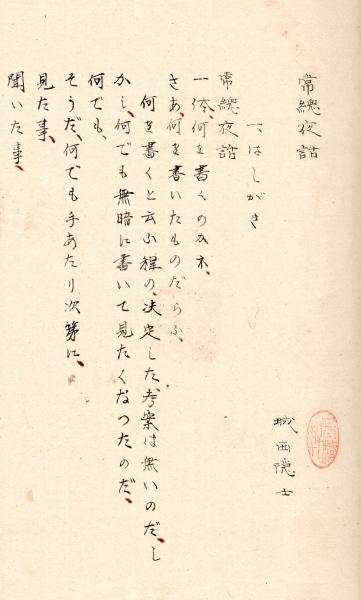 常總夜話
城西隠士
一、はしがき
常總夜話
一体、何を書くのかネ、
さあ、何を書いたものだらふ、
何を書くと云ふ程の、决定した、考案は無いのだ、し
かし、何でも無暗に書いて見たくなつたのだ、
何でも、
そうだ、何でも手あたり次第に、
見た事、
聞いた事、